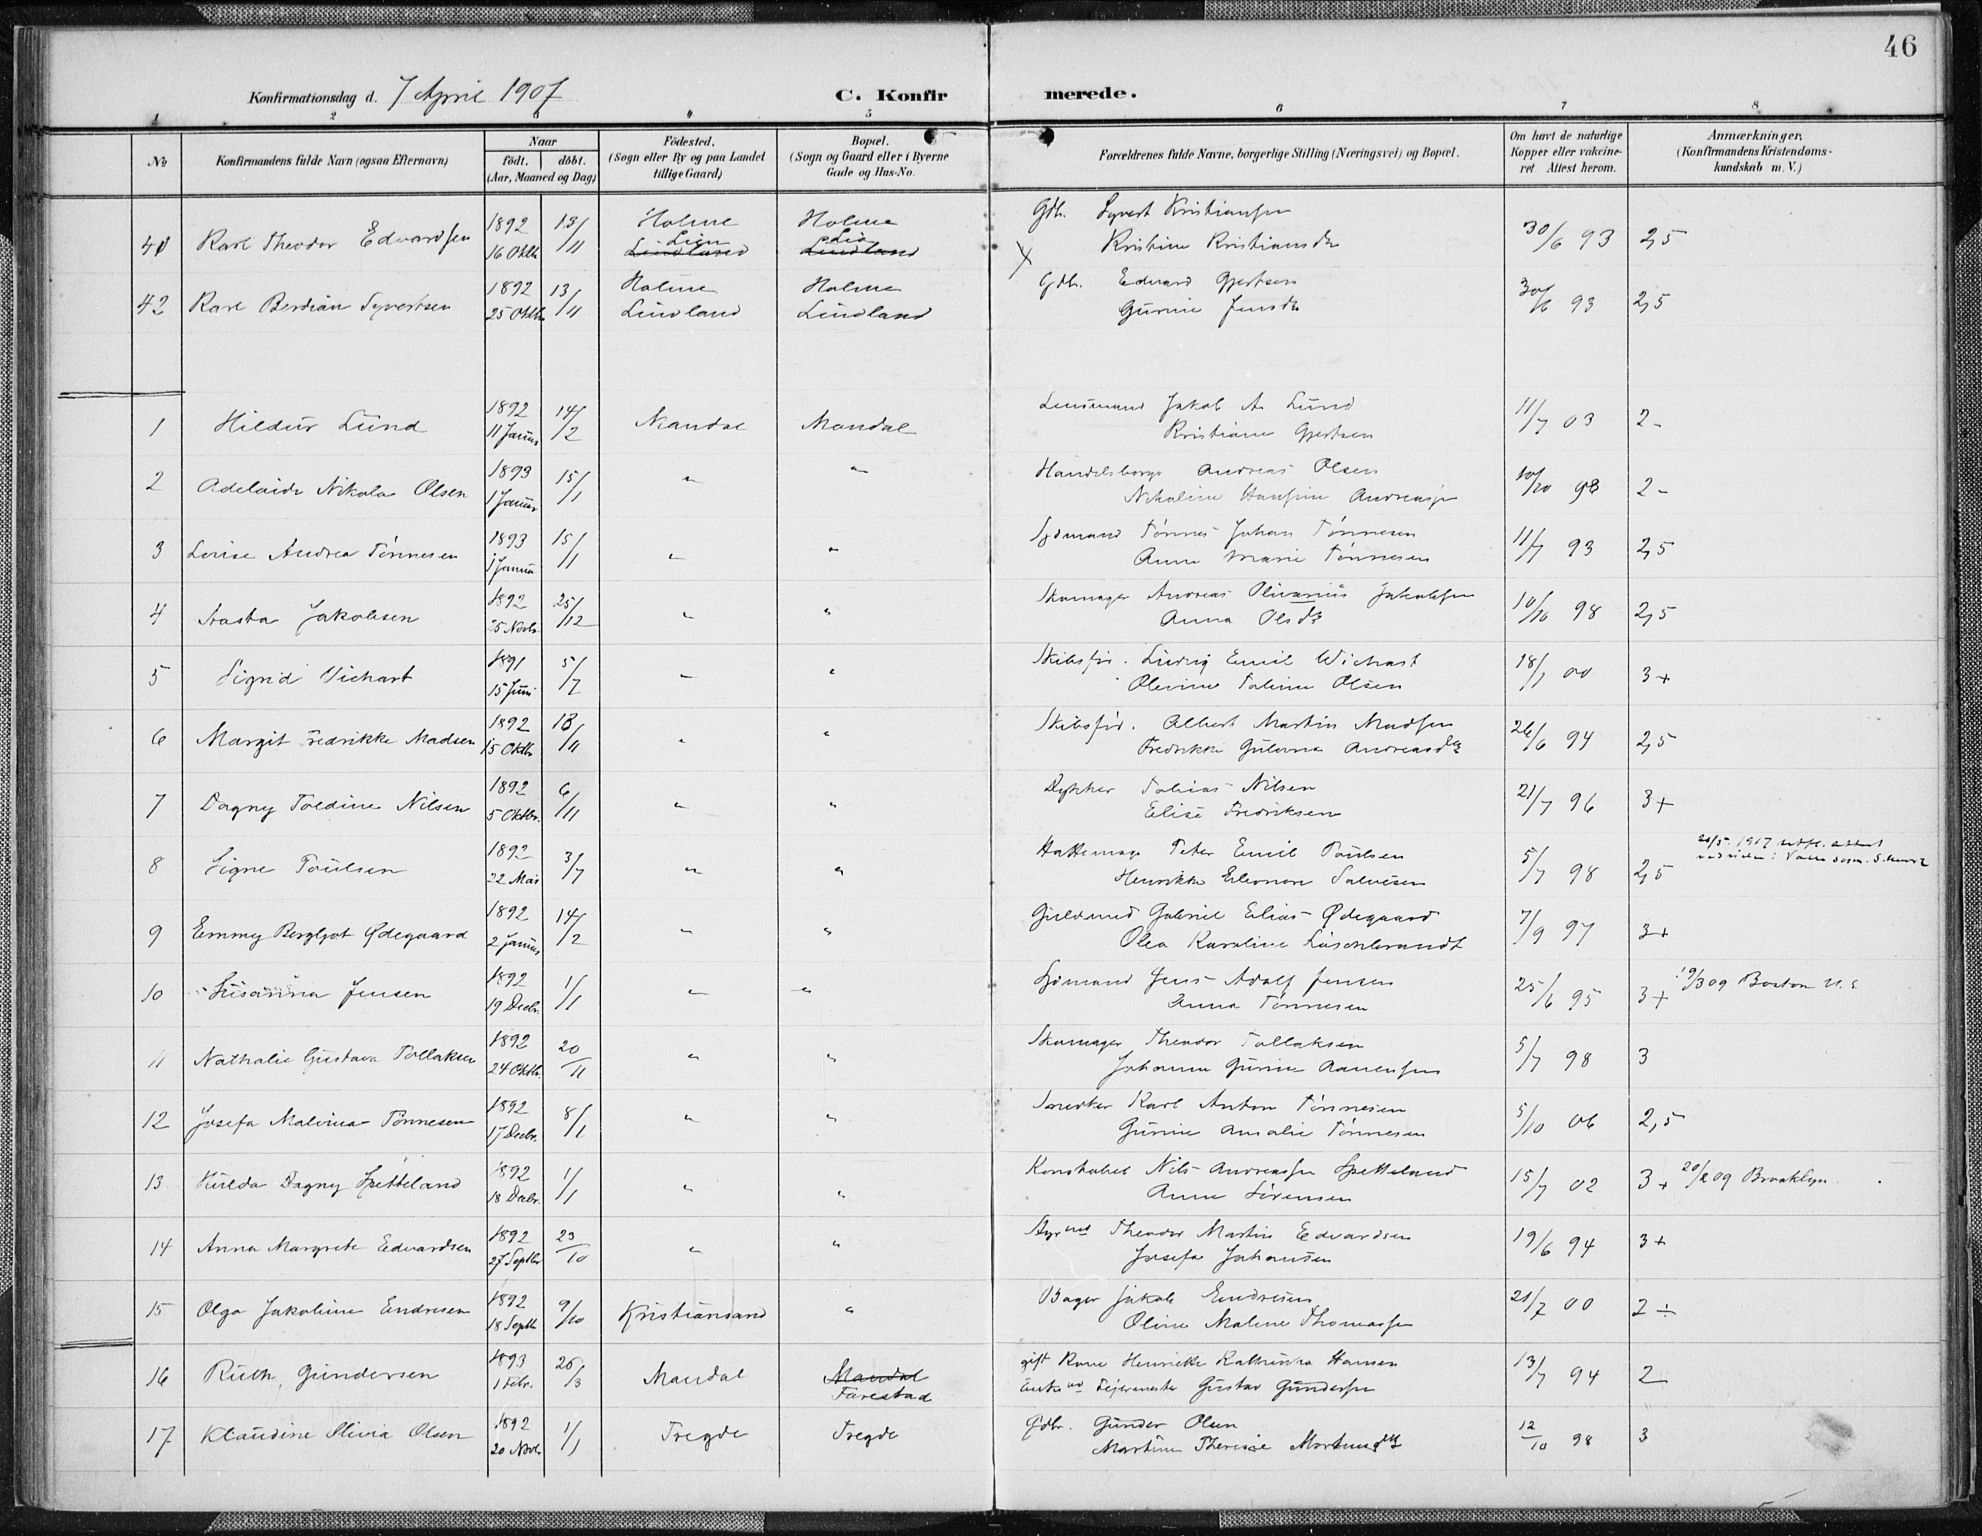 46
Konfirmationsdag d. 7 April 1907 C. Konfirmerede.
1 2 3 4 5 6 7 8
No
Konfirmandens fulde Navn (ogsaa Efternavn)
Naar
födt. döbt.
(Aar, Maaned og Dag)
Födested.
(Sogn eller By og paa Landet
tillige Gaard)
Bopæl.
(Sogn og Gaard eller i Byerne
Gade og Hus-No.
Forældrenes fulde Navne, borgerlige Stilling (Næringsvei) og Bopæl.
Om havt de naturlige
Kopper eller vakcine-
ret Attest herom.
Anmærkninger,
(Konfirmandens Kristendoms-
kundskab m. V.)
1892 13/11 Holme Holme Gdb. Syvert Kristiansen
41 Karl Theodor Edvardsen 16 Oktb Lien Lindland Lia Lindland X Kristine Kristiansdr 30/6 93 2,5
1892 13/11 Holme Holme Gdb. Edvard Gjertsen
42 Karl Berdian Syvertsen 25 Oktb Lindland Lindland Gurine Jensdr 30/6 93 2,5
1892 14/2 Lensmand Jakob A. Lund
1 Hildur Lund 11 Januar Mandal Mandal Kristiane Gjertsen 11/7 03 2-
1893 15/1 Handelsborge Andreas Olsen
2 Adelaide Nikola Olsen 1 Januar " " Nikoline Hansine Andreasen 10/10 98 2-
1893 15/1 Sjømand Tønnes Johan Tønnesen
3 Lovise Andrea Tønnesen 1 Janua " " Anne Marie Tønnesen 11/7 93 2,5
1892 25/12 Skomager Andreas Olivarius Jakobsen
4 Aasta Jakobsen 25 Novb. " " Anna Olsdr 10/10 98 2,5
1891 5/7 Skibsfør. Ludvig Emil Wichart
5 Sigrid Vichart 15 Juni " " Olevine Taline Olsen 18/1 00 3+
1892 13/11 Skibsfør. Albert Martin Madsen
6 Margit Fredrikke Madsen 15 Oktb " " Fredrikke Gulovna Andreasdr 26/6 94 2,5
1892 6/11 Dykker Tobias Nilsen
7 Dagny Toldine Nilsen 5 Oktbr. " " Elise Fredriksen 21/7 96 3+
1892 3/7 Hattemager Peter Emil Poulsen
8 Signe Poulsen 22 Mai " " Henrikke Eleonore Salvesen 5/7 98 2,5 1907 Attest
1892 14/2 Guldsmed Gabriel Elias Ødegaard
9 Emmy Bergljot Ødegaard 2 Januar " " Olea Karoline Laschbrandt 7/9 97 3+
1892 1/1 Sjømand Jens Adolf Jensen
10 Susanna Jensen 19 Decbr. " " Anna Tønnesen 25/6 95 3+ 19/3 09 Boston U.S.
1892 20/11 Skomager Theodor Tallaksen
11 Nathalie Gustava Tallaksen 24 Oktb. " " Johanne Gurine Aanensen 5/7 98 3
1892 8/1 Snedker Karl Anton Tønnesen
12 Josefa Malvina Tønnesen 17 Decbr. " " Gunine Amalie Tønnesen 5/10 06 2,5
1892 1/1 Konstabel Nils Andreassen Spetteland
13 Hulda Dagny Spetteland 18 Decbr. " " Anne Sørensen 15/7 02 3+ 20/2 09 Brooklyn
1892 23/10 Styrmd Theodor Martin Edvardsen
14 Anna Margrete Edvardsen 27 Septbr " " Josefa Johansen 19/6 94 3+
1892 9/10 Bager Jakob Endresen
15 Olga Jakobine Endresen 18 Septb Kristiansand " Oline Malene Thomassen 21/7 00 2÷
1893 26/3 gift Kone Henriette Kathinka Hansen
16 Ruth Gundersen 1 Febr. Mandal Mandal Farestad Enke Feiermester Gustav Gundersen 13/7 94 2-
1892 1/1 Gdbr. Gunder Olsen
17 Klaudine Olivia Olsen 20 Novb Tregde Tregde Martine Therese Mortensdtr 12/10 98 3